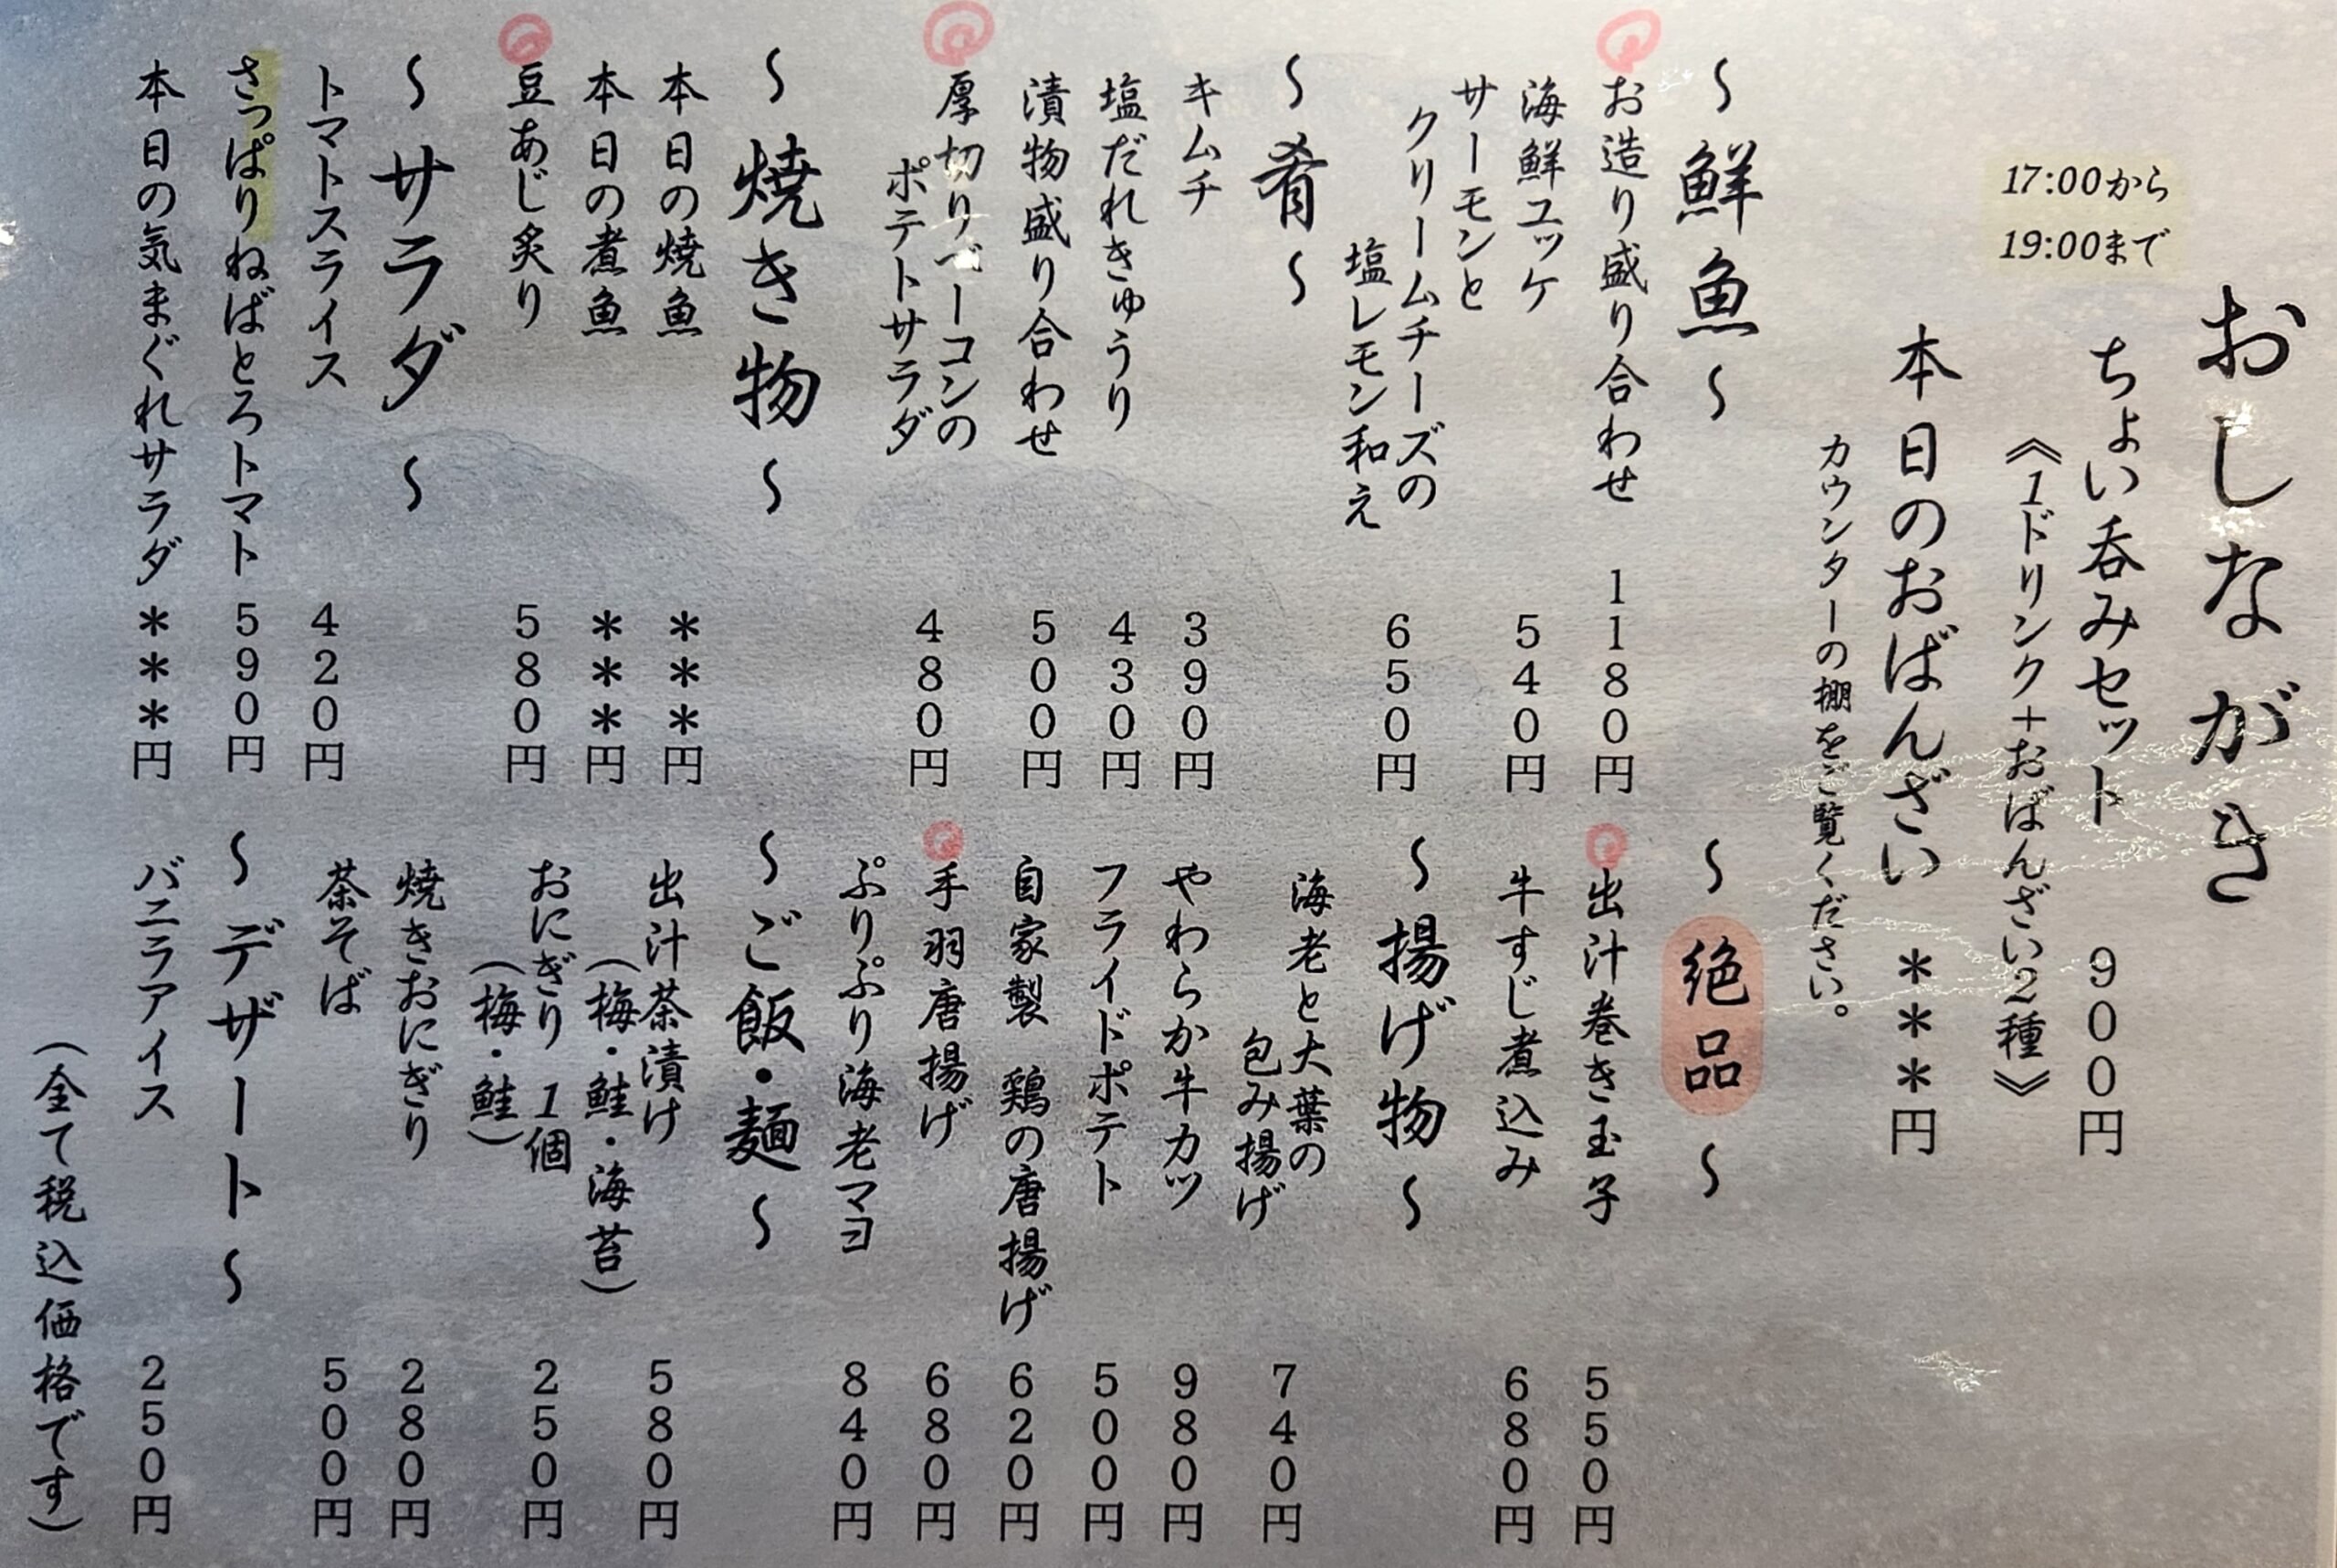 おしながき
17:00から
19:00まで
ちょい呑みセット 900円
《1ドリンク+おばんざい2種》
本日のおばんざい ***円
カウンターの棚をご覧ください。
~鮮魚~
お造り盛り合わせ 1180円
海鮮ユッケ 540円
サーモンと
クリームチーズの
塩レモン和え 650円
~肴~
キムチ 390円
塩だれきゅうり 430円
漬物盛り合わせ 500円
厚切りベーコンの
ポテトサラダ 480円
~焼き物~
本日の焼魚 ***円
本日の煮魚 ***円
豆あじ炙り 580円
~サラダ~
トマトスライス 420円
さっぱりねばとろトマト 590円
本日の気まぐれサラダ ***円
~絶品~
出汁巻き玉子 550円
牛すじ煮込み 680円
~揚げ物~
海老と大葉の
包み揚げ 740円
やわらか牛カツ 980円
フライドポテト 500円
自家製 鶏の唐揚げ 620円
手羽唐揚げ 680円
ぷりぷり海老マヨ 840円
~ご飯・麺~
出汁茶漬け 580円
(梅・鮭・海苔)
おにぎり 1個 250円
(梅・鮭)
焼きおにぎり 280円
茶そば 500円
~デザート~
バニラアイス 250円
(全て税込価格です)